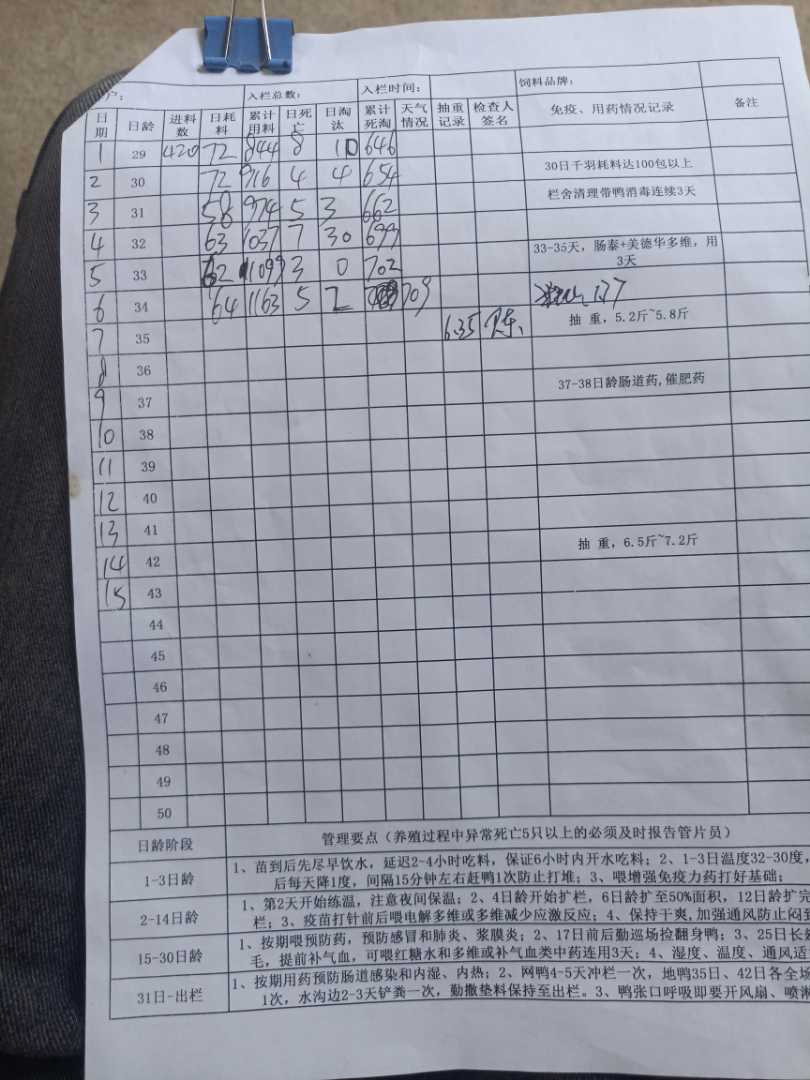 户: 入栏总数: 入栏时间: 饲料品牌:
日期 日龄 进料数 日耗料 累计用料 日死亡 日淘汰 累计死淘 天气情况 抽重记录 检查人签名 免疫、用药情况记录 备注
1 29 420 72 844 8 10 646
2 30 72 916 4 4 654 30日千羽耗料达100包以上
3 31 58 974 5 3 662 栏舍清理带鸭消毒连续3天
4 32 63 1037 7 30 699
5 33 62 1099 3 0 702 33-35天，肠泰+美德华多维，用3天
6 34 64 1163 5 2 709
7 35 6.35 陈 抽 重，5.2斤~5.8斤
8 36
9 37 37-38日龄肠道药,催肥药
10 38
11 39
12 40
13 41
14 42 抽 重，6.5斤~7.2斤
15 43
44
45
46
47
48
49
50
日龄阶段 管理要点（养殖过程中异常死亡5只以上的必须及时报告管片员）
1-3日龄 1、苗到后先尽早饮水，延迟2-4小时吃料，保证6小时内开水吃料；2、1-3日温度32-30度，
后每天降1度，间隔15分钟左右赶鸭1次防止打堆；3、喂增强免疫力药打好基础；
2-14日龄 1、第2天开始练温，注意夜间保温；2、4日龄开始扩栏，6日龄扩至50%面积，12日龄扩完
栏；3、疫苗打针前后喂电解多维或多维减少应激反应；4、保持干爽,加强通风防止闷到
15-30日龄 1、按期喂预防药，预防感冒和肺炎、浆膜炎；2、17日前后勤巡场捡翻身鸭；3、25日长
毛，提前补气血，可喂红糖水和多维或补气血类中药连用3天；4、湿度、温度、通风适
31日-出栏 1、按期用药预防肠道感染和内湿、内热；2、网鸭4-5天冲栏一次，地鸭35日、42日各全场
1次，水沟边2-3天铲粪一次，勤撒垫料保持至出栏。3、鸭张口呼吸即要开风扇、喷淋